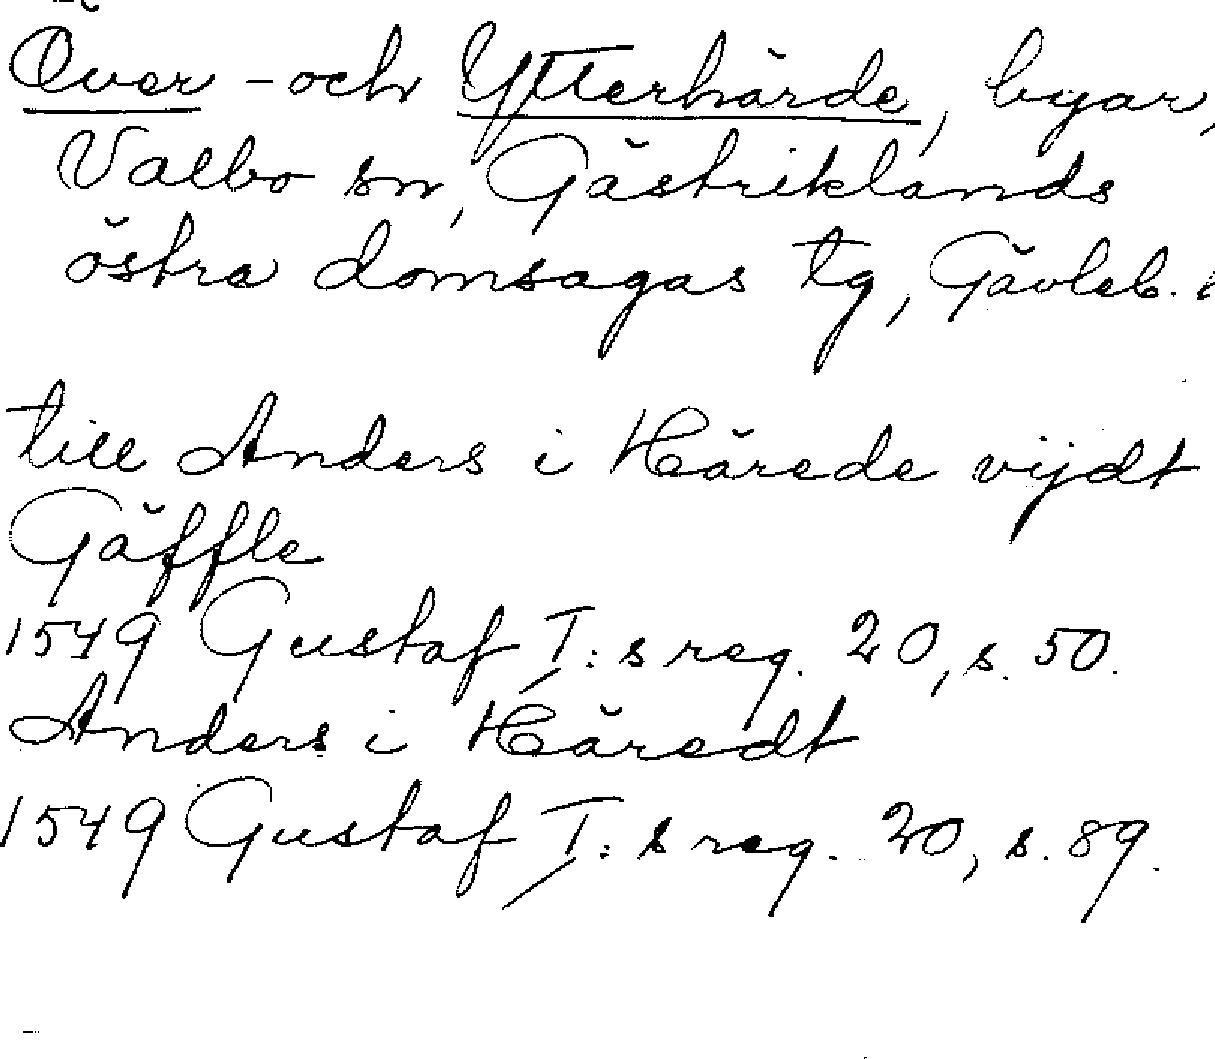 Över - och Ytterhärde, byar,
Valbo sn, Gästriklands
östra domsagas tg, Gävleb.
till Anders i Härede vijdt
Gäffle
1549 Gustaf I:s reg. 20, s. 50.
Anders i Häredt
1549 Gustaf I:s reg. 20, s. 89.